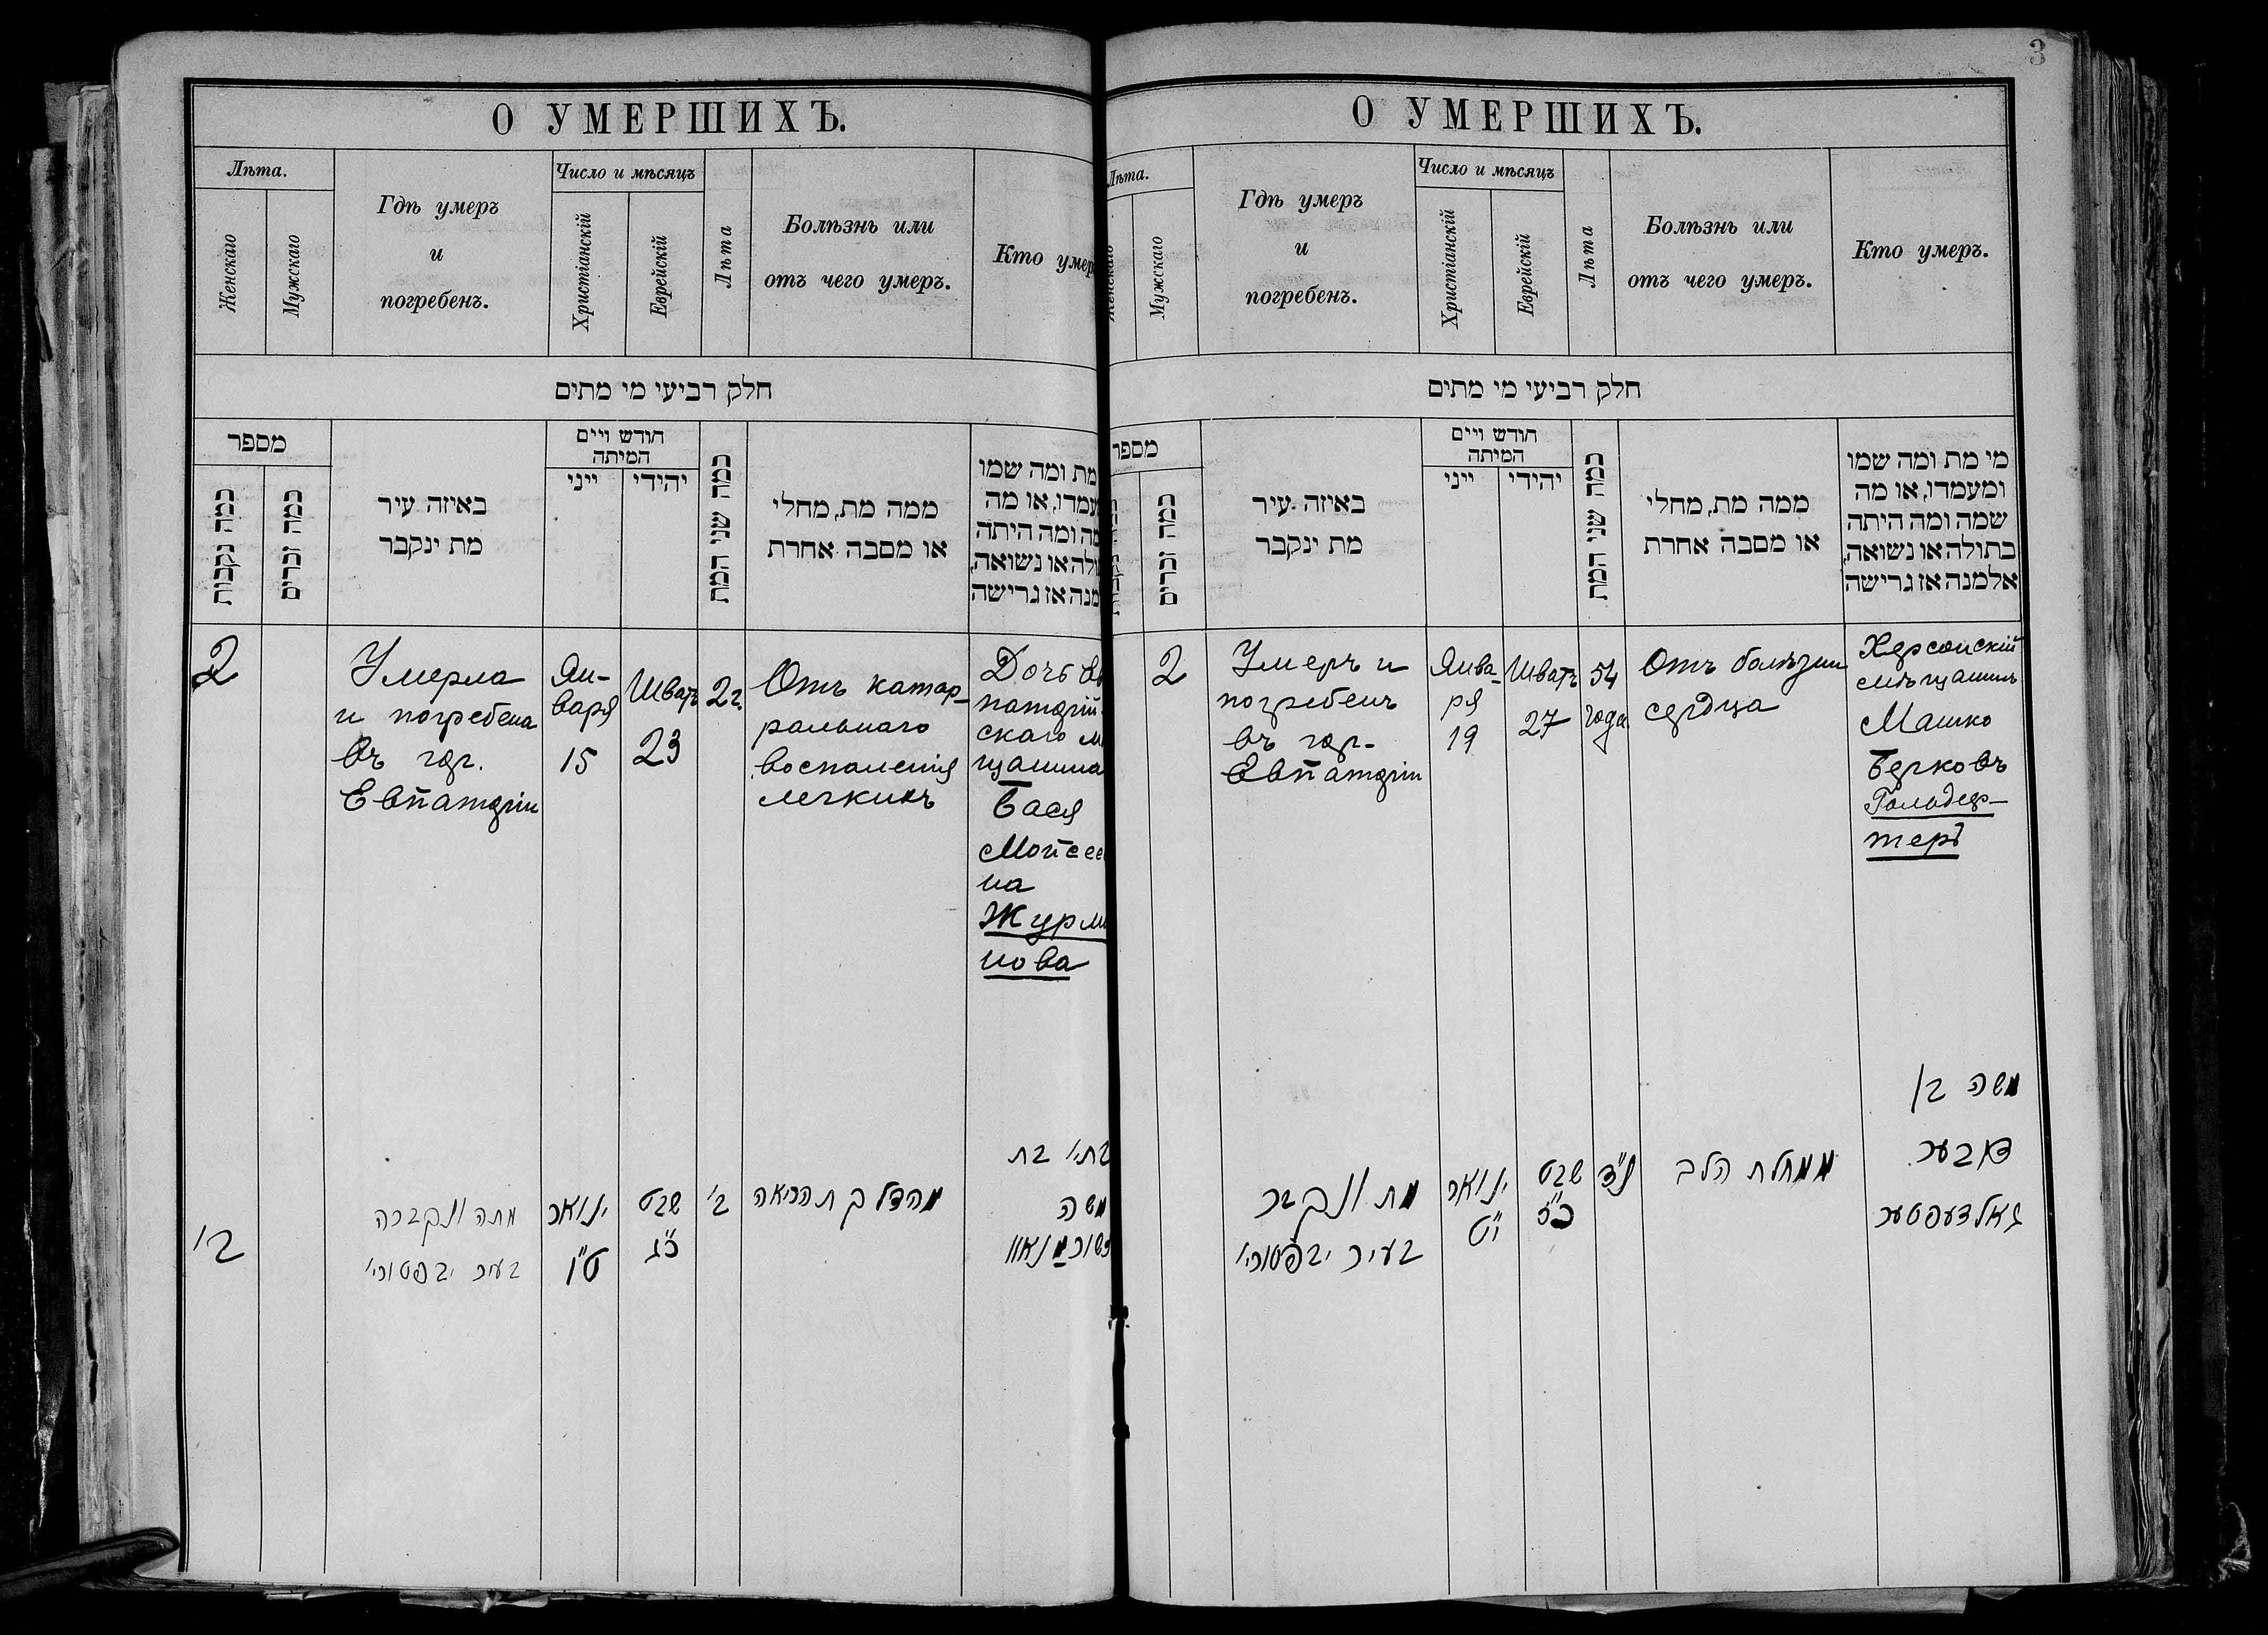 О УМЕРШИХЪ.
Лѣта.
Женскаго
Мужскаго
Гдѣ умеръ
и
погребенъ.
Число и мѣсяцъ
Христіанскій
Еврейскій
Лѣта
Болѣзнь или
отъ чего умеръ.
Кто умер
חלק רביעי מי מתים
מספר
כמה נקבות
כמה זכרים
באיזה עיר
מת ינקבר
חודש ויים
המיתה
ייני
יהודי
כמה שני המת
ממה מת, מחלי
או מסבה אחרת
מת ומה שמו
עמדו, או מה
מה ומה היתה
ולה או נשואה,
מנה אז גרישה
2
Умерла
и погребена
въ гор.
Евпаторіи
Ян-
варя
15
Шватъ
23
2 г.
Отъ катар-
ральнаго
воспаленія
легкихъ
Дочь Ев
паторій
скаго м
щанина
Бася
Мойсее
на
Журми
нова
ב'
מתה ונקברה
בעיר יבפטורי'
ינואר
ט"ו
שבט
כ"ג
ב'
מהדלקת הריאה
בתי' בת
משה
זשורמינאוו
3
О УМЕРШИХЪ.
Лѣта.
Женскаго
Мужскаго
Гдѣ умеръ
и
погребенъ.
Число и мѣсяцъ
Христіанскій
Еврейскій
Лѣта
Болѣзнь или
отъ чего умеръ.
Кто умеръ.
חלק רביעי מי מתים
מספר
כמה זכרים
באיזה עיר
מת ינקבר
חודש ויים
המיתה
ייני
יהודי
כמה שני המת
ממה מת, מחלי
או מסבה אחרת
מי מת ומה שמו
ומעמדו, או מה
שמה ומה היתה
בתולה או נשואה,
אלמנה אז גרישה
2
Умеръ и
погребенъ
въ гор-
Евпаторіи
Янва-
ря
19
Шватъ
27
54
года
Отъ болѣзни
сердца
Херсонскій
мѣщанинъ
Машко
Берковъ
Голодеф-
теръ
מת ונקבר
בעיר יבפטורי'
ינואר
י"ט
שבט
כ"ז
נ"ד
ממחלת הלב
משה בן
דובער
גאלדעפטער